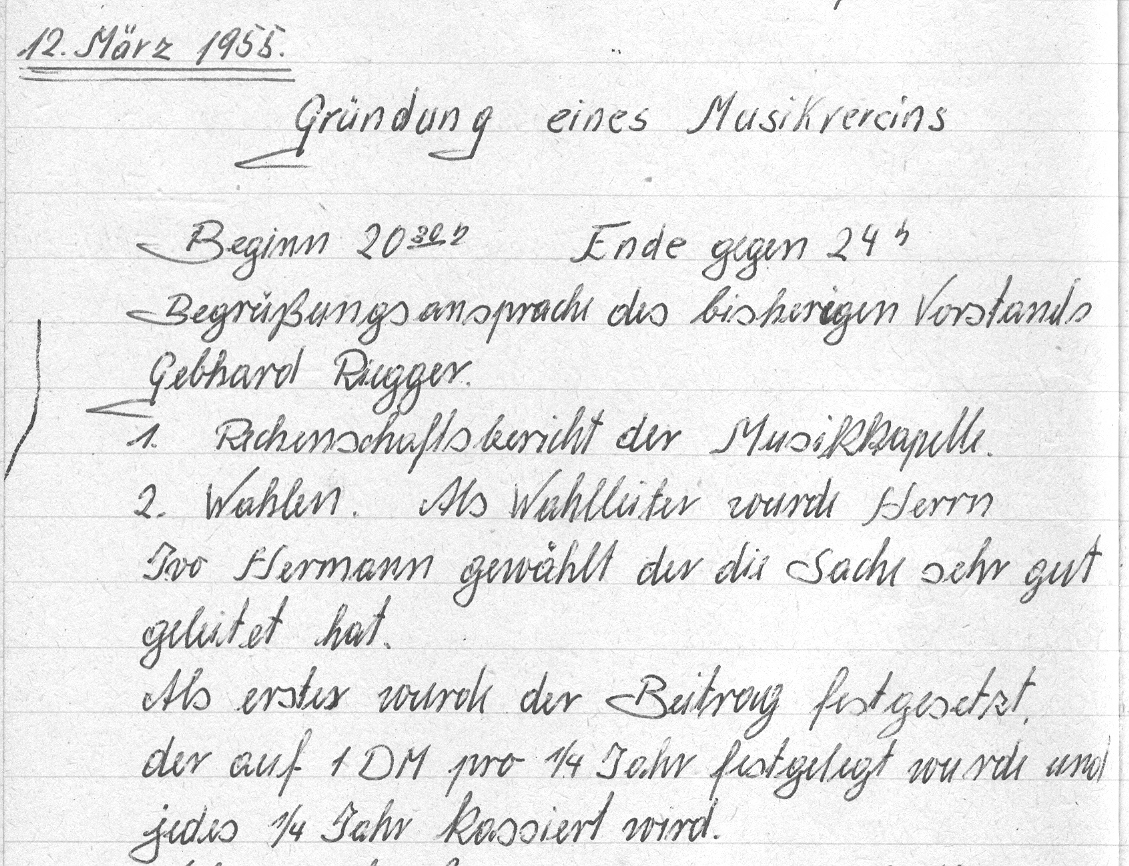 12. März 1955.
Gründung eines Musikvereins
Beginn 20³⁰ʰ Ende gegen 24ʰ
Begrüßungsansprache des bisherigen Vorstands
Gebhard Riegger.
1. Rechenschaftsbericht der Musikkapelle.
2. Wahlen. Als Wahlleiter wurde Herrn
Ivo Hermann gewählt der die Sache sehr gut
geleitet hat.
Als erstes wurde der Beitrag festgesetzt,
der auf 1 DM pro 1/4 Jahr festgelegt wurde und
jedes 1/4 Jahr kassiert wird.